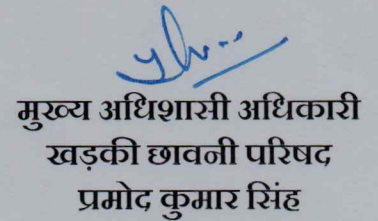 मुख्य अधिशासी अधिकारी
खड़की छावनी परिषद
प्रमोद कुमार सिंह